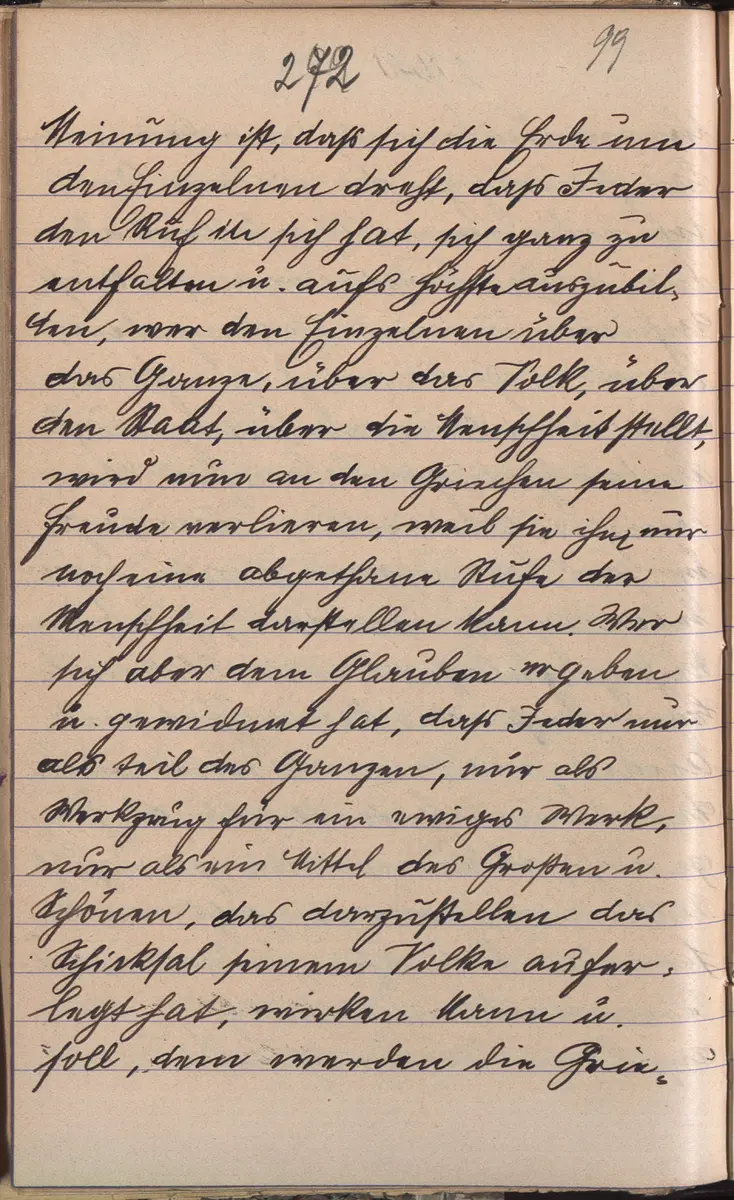 99
272
Meinung ist, dass sich die Erde um
den Einzelnen dreht, dass Jeder
den Ruf in sich hat, sich ganz zu
entfalten u. aufs höchste auszubil-
den, wer den Einzelnen über
das Ganze, über das Volk, über
den Staat, über die Menschheit stellt,
wird nun an den Griechen seine
Freude verlieren, weil sie ihm nur
noch eine abgethane Stufe der
Menschheit darstellen kann. Wer
sich aber dem Glauben ergeben
u. gewidmet hat, dass Jeder nur
als teil des Ganzen, nur als
Werkzeug für ein ewiges Werk,
nur als ein Mittel des Großen u.
Schönen, das darzustellen das
Schicksal seinem Volke aufer-
legt hat, wirken kann u.
soll, dem werden die Grie-